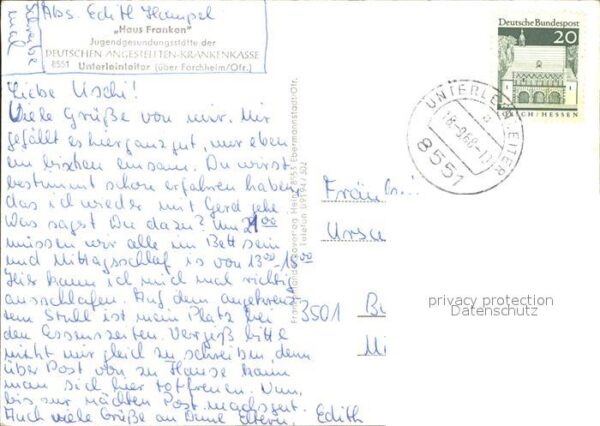 Abs. Edith Hampel
„Haus Franken"
Jugendgesundungsstätte der
DEUTSCHEN ANGESTELLTEN-KRANKENKASSE
8551 Unterleinleiter (über Forchheim/Ofr.)
Deutsche Bundespost
20
LORSCH/HESSEN
UNTERLEINLEITER
a
8551
Liebe Uschi!
Viele Grüße von mir. Mir
gefällt es hier ganz gut, nur eben
ein bischen einsam. Du wirst
bestimmt schon erfahren haben
das ich wieder mit Gerd gehe.
Was sagst Du dazu? Um 21⁰⁰
müssen wir alle im Bett sein
und Mittagsschlaf is von 13⁰⁰-15⁰⁰
Hier kann ich mich mal richtig
ausschlafen. Auf dem angekreuz-
tem Stuhl ist mein Platz bei
den Essenszeiten. Vergiß bitte
nicht mir gleich zu schreiben, denn
über Post von zu Hause kann
man sich hier totfreuen. Nun,
bis zur nächsten Post, machs gut.
Auch viele Grüße an Deine Eltern. Edith
8553 Ebermannstadt/Ofr.
Telefon
Fräulein
Ursu
3501 Bu
privacy protection
Datenschutz